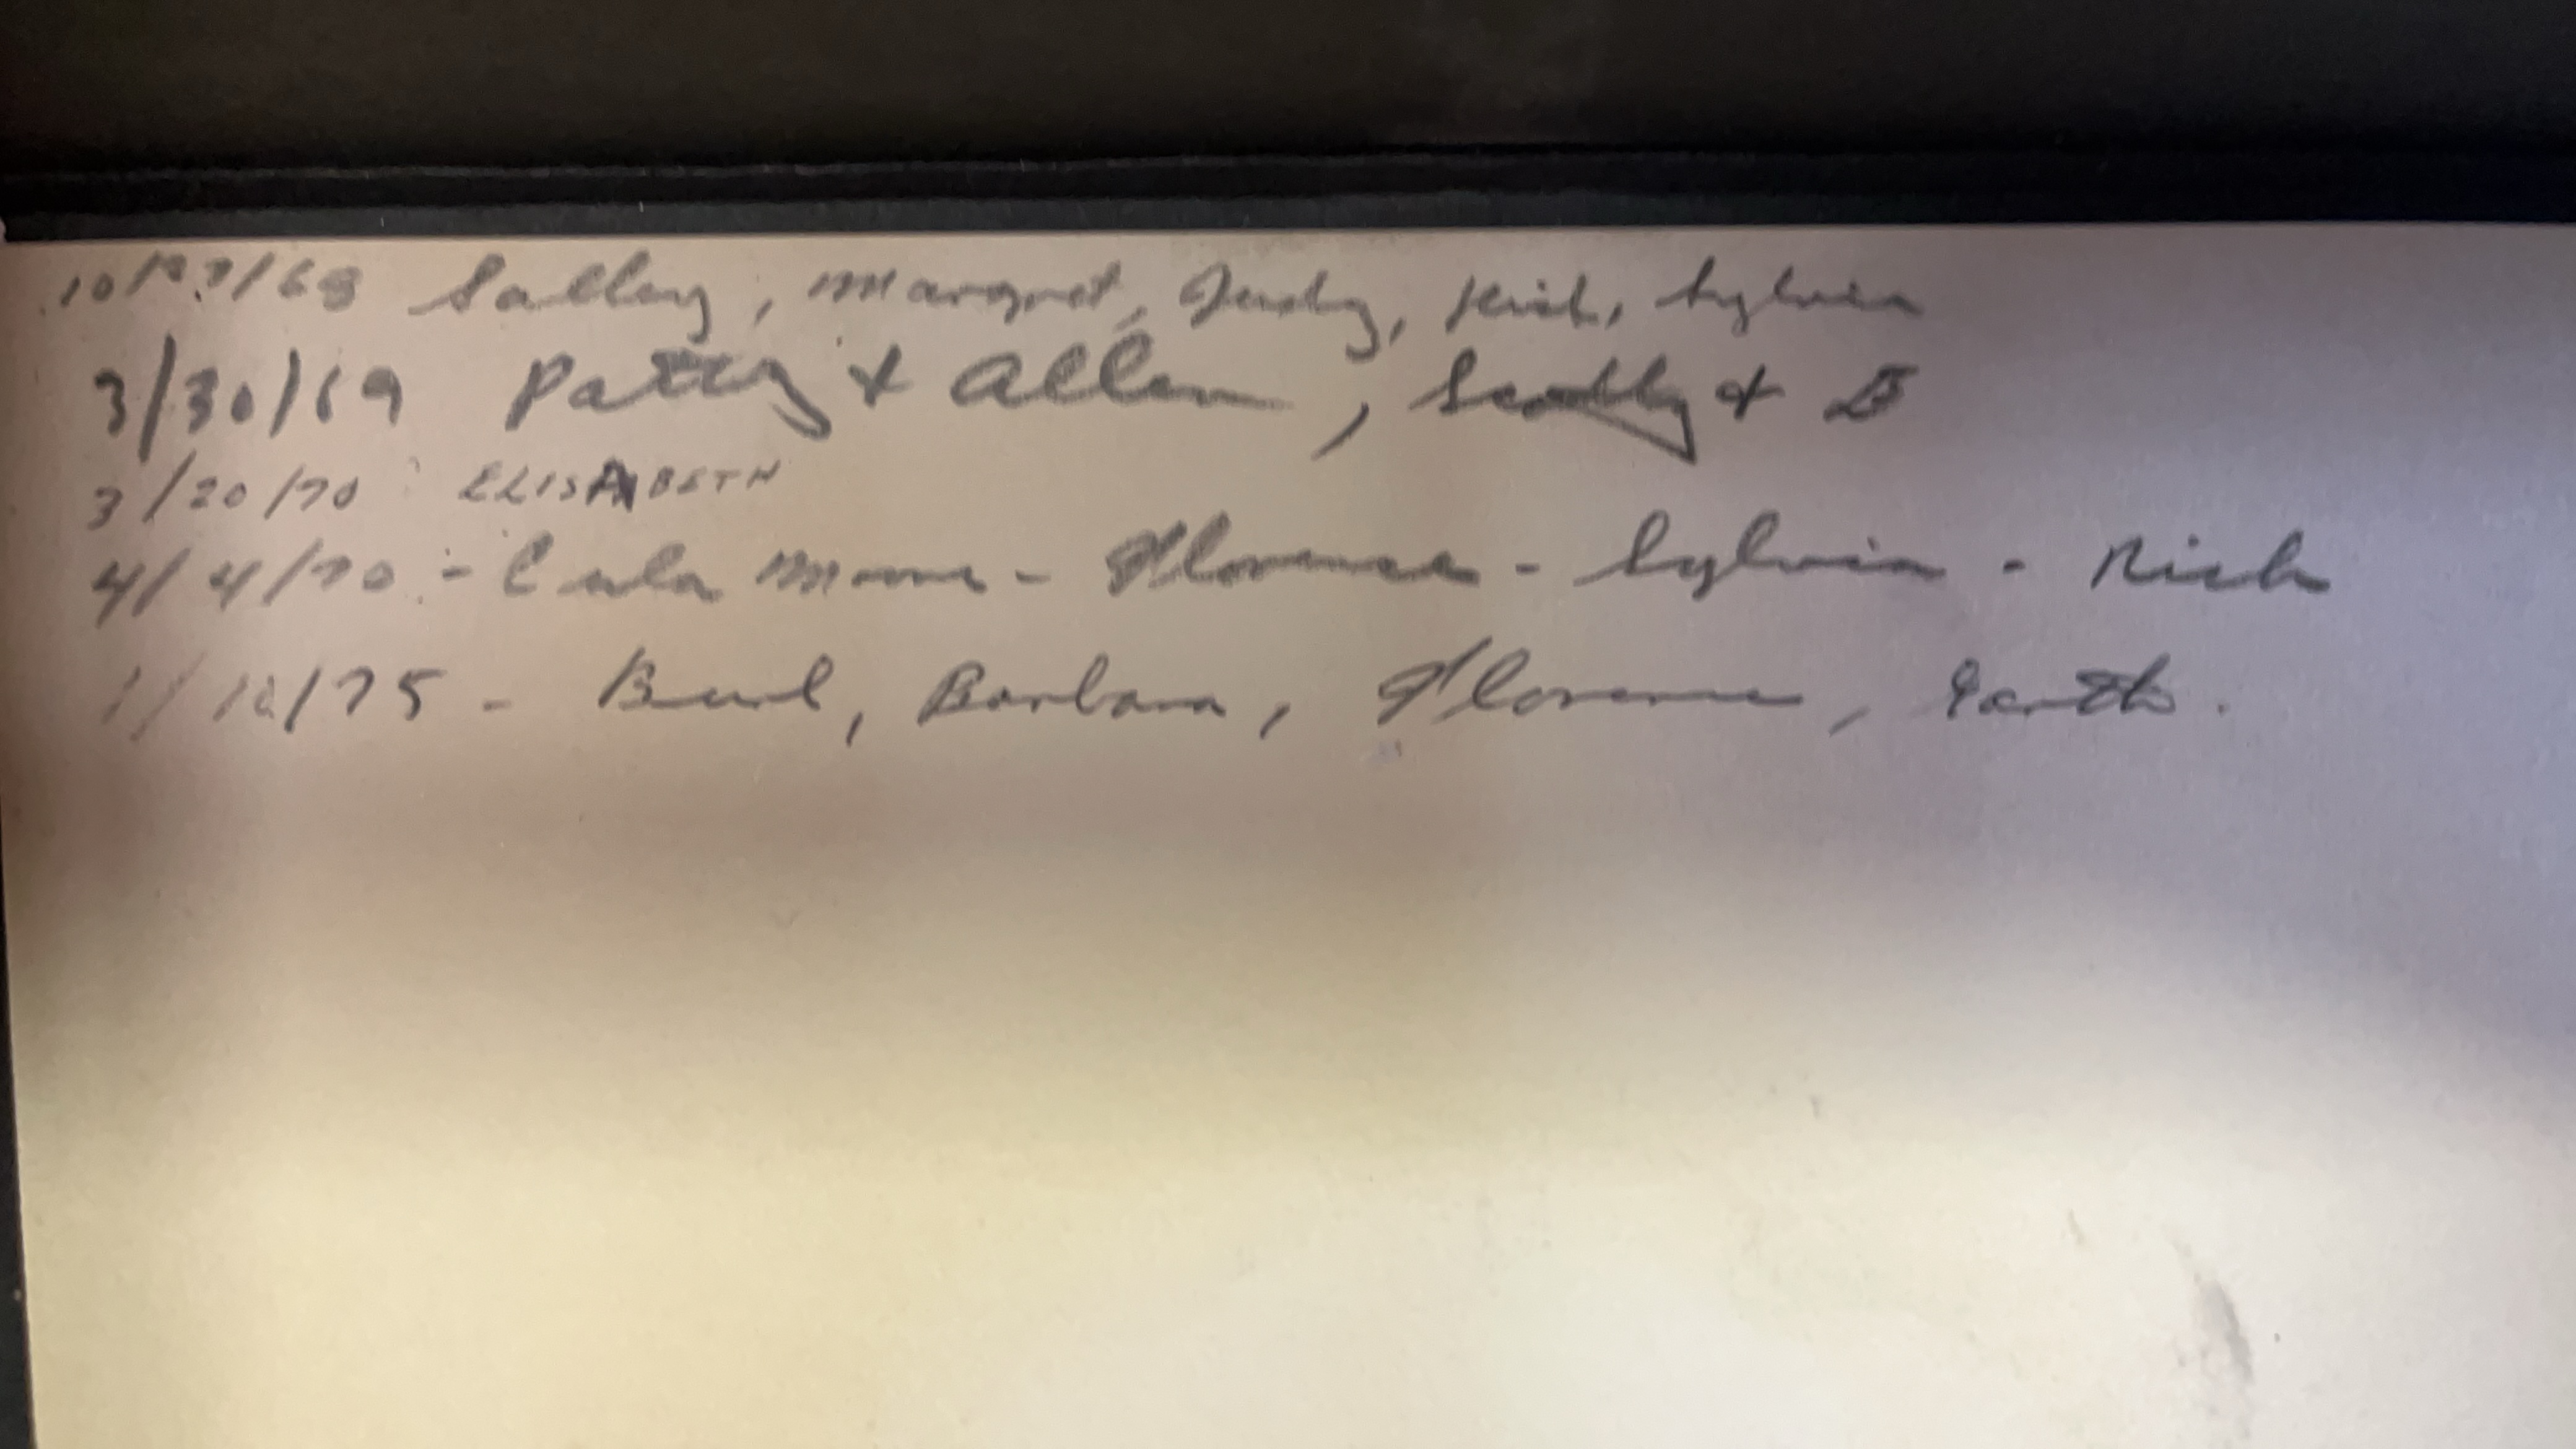 10/27/68 Salley, Margret, Judy, Rich, Sylvia
3/30/69 Patty & Allen, Scotty & B
3/20/70 ELISABETH
4/4/70 - Eula Mone - Florence - Sylvia - Rich
1/12/75 - Burl, Barbara, Florence, Garth.